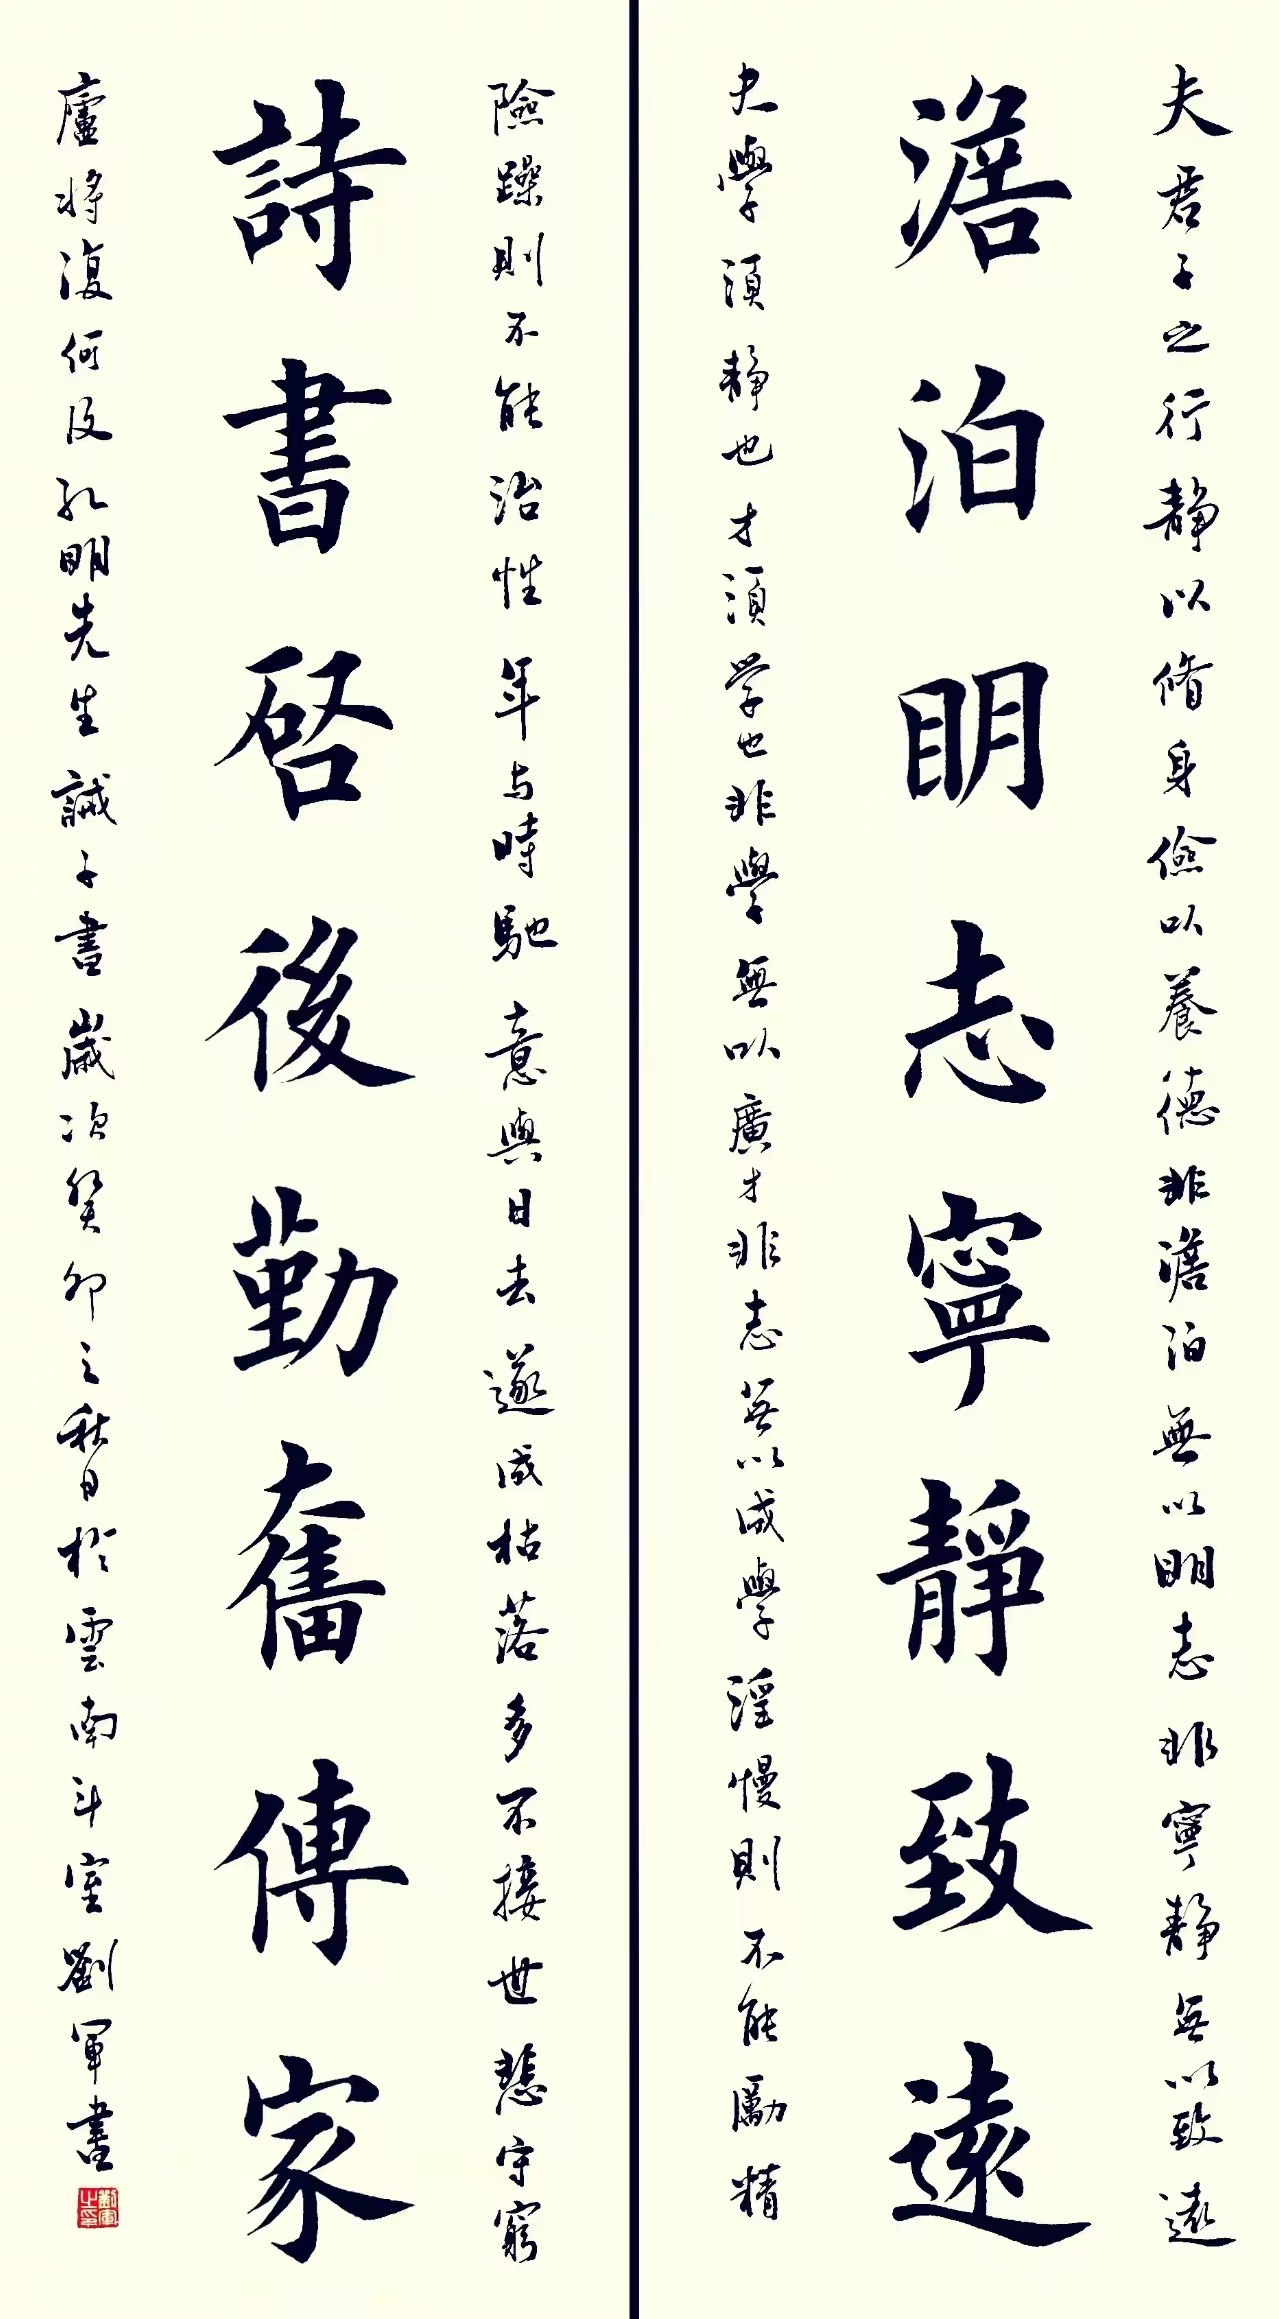 夫君子之行静以脩身儉以養德非澹泊無以明志非寧靜無以致遠
澹泊明志寧靜致遠
夫學須靜也才須学也非學無以廣才非志無以成學淫慢則不能勵精
險躁則不能治性年与時馳意與日去遂成枯落多不接世悲守窮
詩書啓後勤奮傳家
廬將復何及孔明先生誡子書歲次癸卯之秋日於雲南斗室劉軍書
劉軍之印